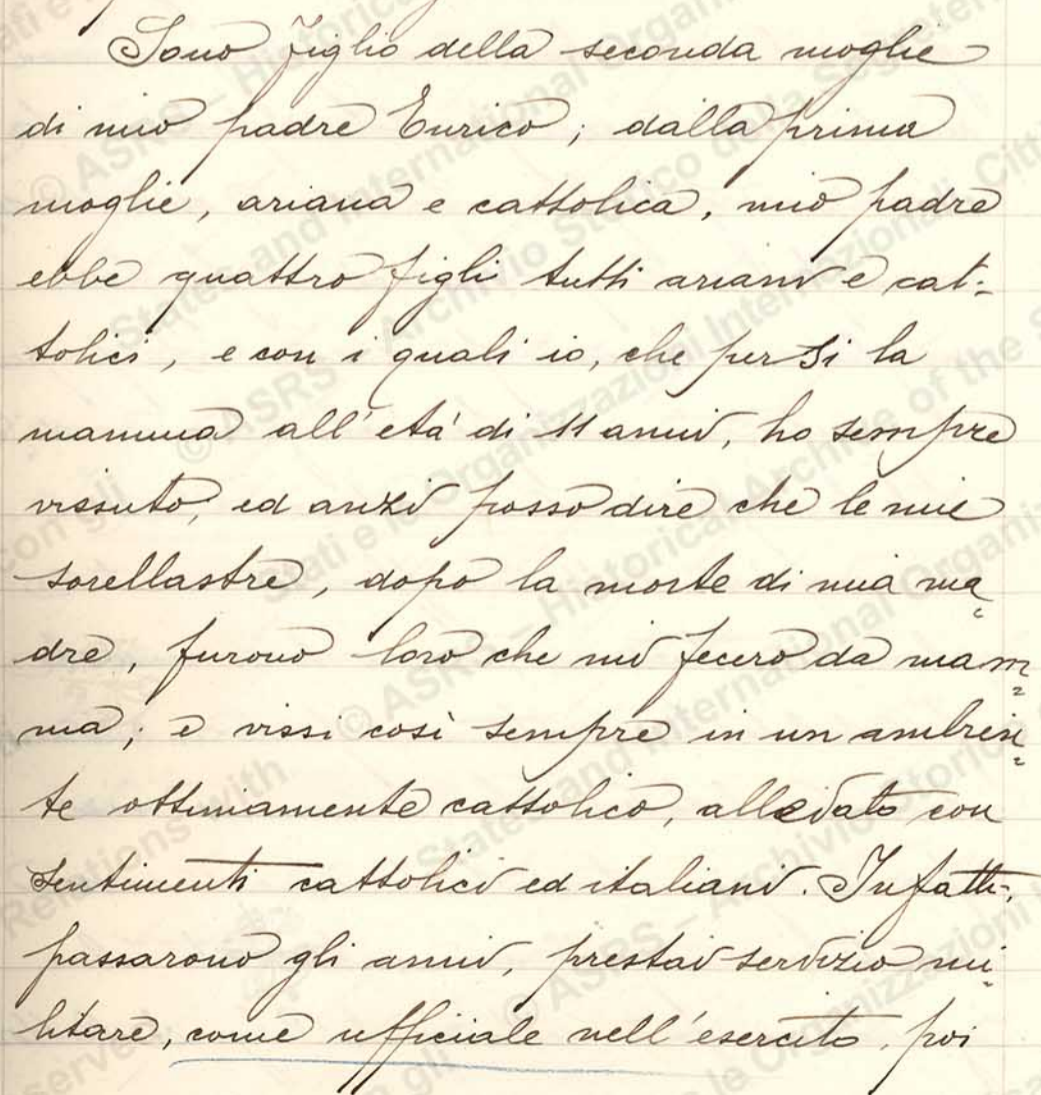 Sono figlio della seconda moglie
di mio padre Enrico; dalla prima
moglie, ariana e cattolica, mio padre
ebbe quattro figli tutti ariani e cat=
tolici, e con i quali io, che persi la
mamma all'età di 11 anni, ho sempre
vissuto, ed anzi posso dire che le mie
sorellastre, dopo la morte di mia ma=
dre, furono loro che mi fecero da mam=
ma; e vissi così sempre in un ambien=
te ottimamente cattolico, allevato con
sentimenti cattolici ed italiani. Infatti,
passarono gli anni, prestai servizio mi=
litare, come ufficiale nell'esercito, poi